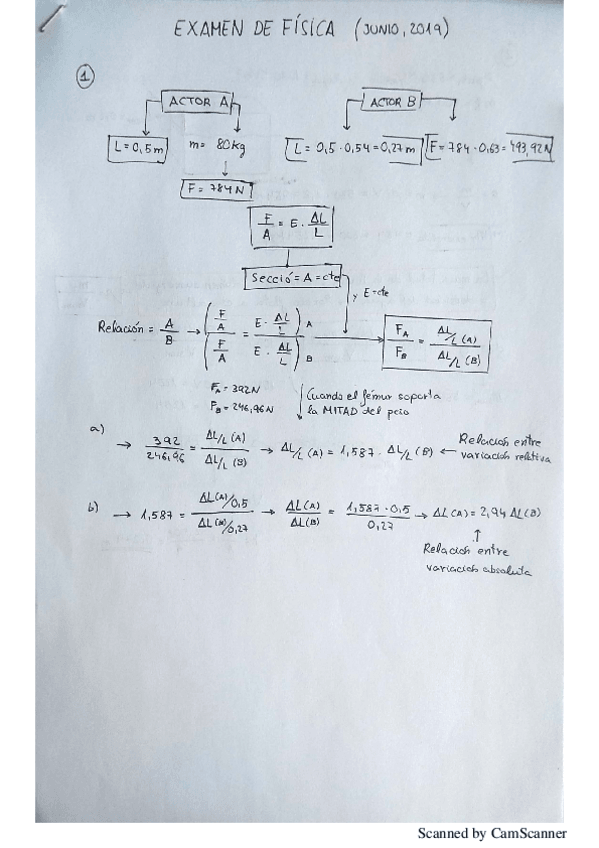 EXAMEN DE FÍSICA (JUNIO, 2019)
1
ACTOR A
ACTOR B
L = 0,5 m
m = 80 kg
L = 0,5 · 0,54 = 0,27 m
F = 784 · 0,63 = 493,92 N
F = 784 N
F/A = E · ΔL/L
Secció = A = cte
y E = cte
Relación = A/B → (F/A / F/A = E · ΔL/L / E · ΔL/L) A B
F_A/F_B = ΔL/L (A) / ΔL/L (B)
F_A = 392 N
F_B = 246,96 N
Cuando el fémur soporta
la MITAD del peso
a)
→ 392/246,96 = ΔL/L (A) / ΔL/L (B) → ΔL/L (A) = 1,587 · ΔL/L (B) ← Relación entre
variación reltiva
b)
→ 1,587 = ΔL(A)/0,5 / ΔL(B)/0,27 → ΔL(A)/ΔL(B) = 1,587 · 0,5 / 0,27 → ΔL(A) = 2,94 ΔL(B)
↑
Relación entre
variación absoluta
Scanned by CamScanner